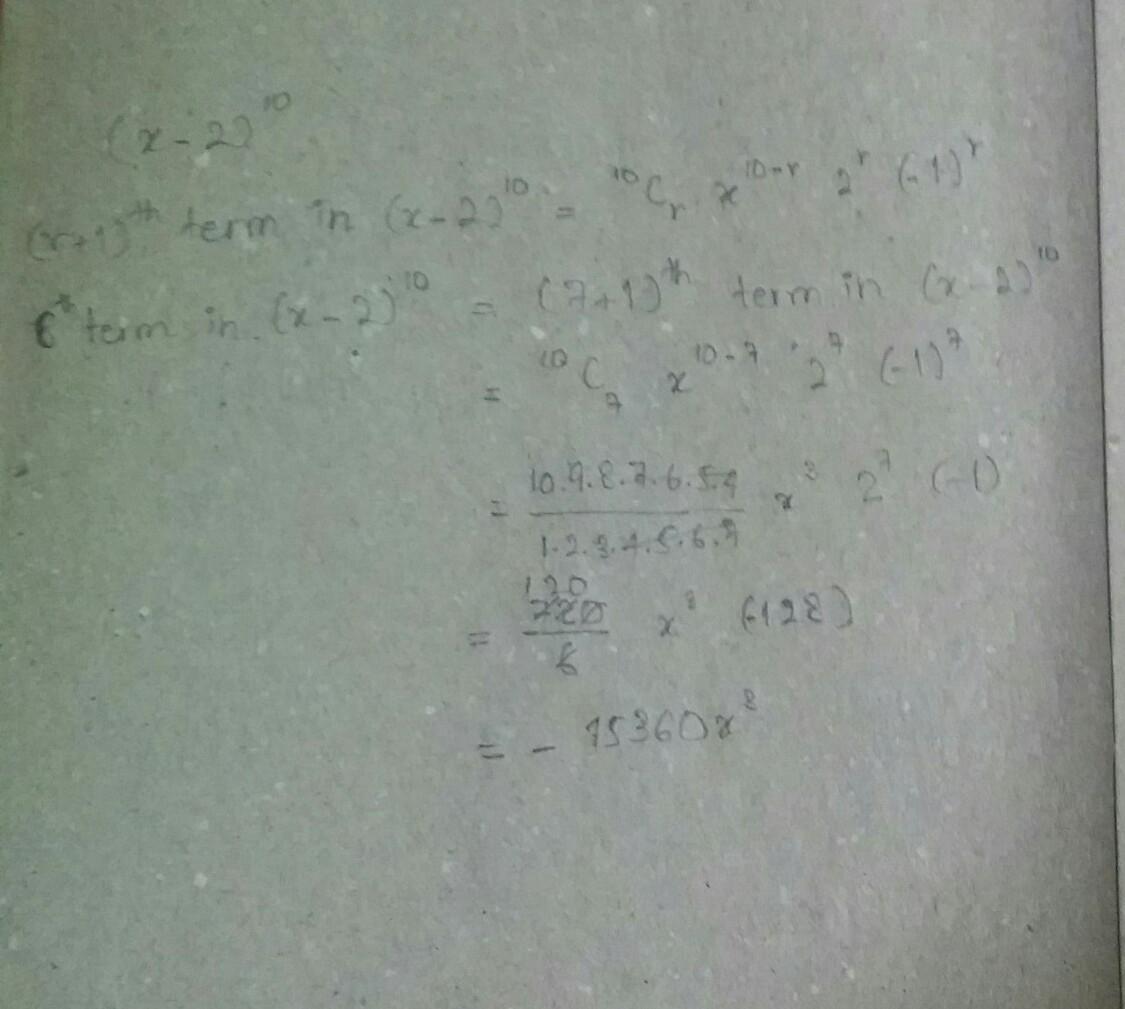 (x-2)^10
(r+1)^th term in (x-2)^10 = ^10C_r x^10-r 2^r (-1)^r
6^th term in (x-2)^10 = (7+1)^th term in (x-2)^10
= ^10C_7 x^10-7 2^7 (-1)^7
= 10.9.8.7.6.5.4 / 1.2.3.4.5.6.7 x^3 2^7 (-1)
= 120 / 6 x^3 (-128)
= - 15360x^3